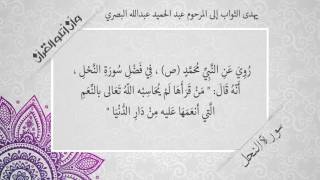 يهدى الثواب إلى المرحوم عبد الحميد عبدالله البصري
وإذا قرئ القرآن
رُوِيَ عَنِ النَّبِيِّ مُحَمَّدٍ (ص) ، فِي فَضْلِ سُورَةِ النَّحْلِ ،
أَنَّهُ قَالَ: " مَنْ قَرَأَهَا لَمْ يُحَاسِبْه اللَّهُ تَعَالَى بِالنِّعَمِ
الَّتِي أَنْعَمَهَا عَلَيه مِنْ دَارِ الدُّنْيَا "
سورة النحل